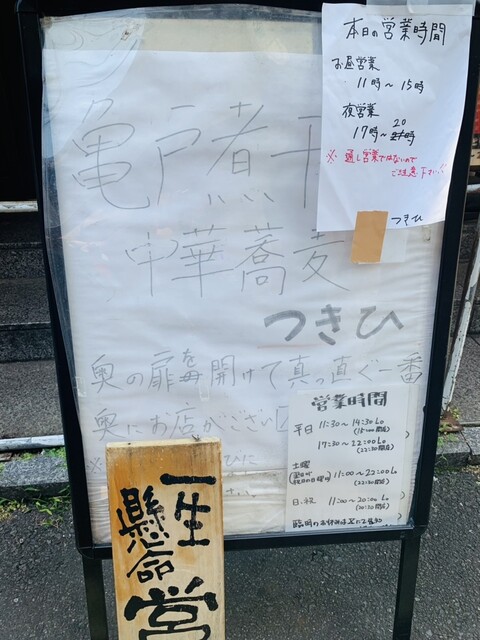 本日の営業時間
お昼営業
11時〜15時
夜営業
17時〜20時
※通し営業ではないので
ご注意下さい!!
つきひ
亀戸煮干
中華蕎麦
つきひ
奥の扉を開けて真っ直ぐ一番
奥にお店がござい
営業時間
平日 11:30〜14:30Lo
(15:00閉店)
17:30〜22:00Lo
(22:30閉店)
土曜
11:00〜22:00Lo
(22:30閉店)
日・祝 11:00〜20:00Lo
(20:30閉店)
一生
懸命
営